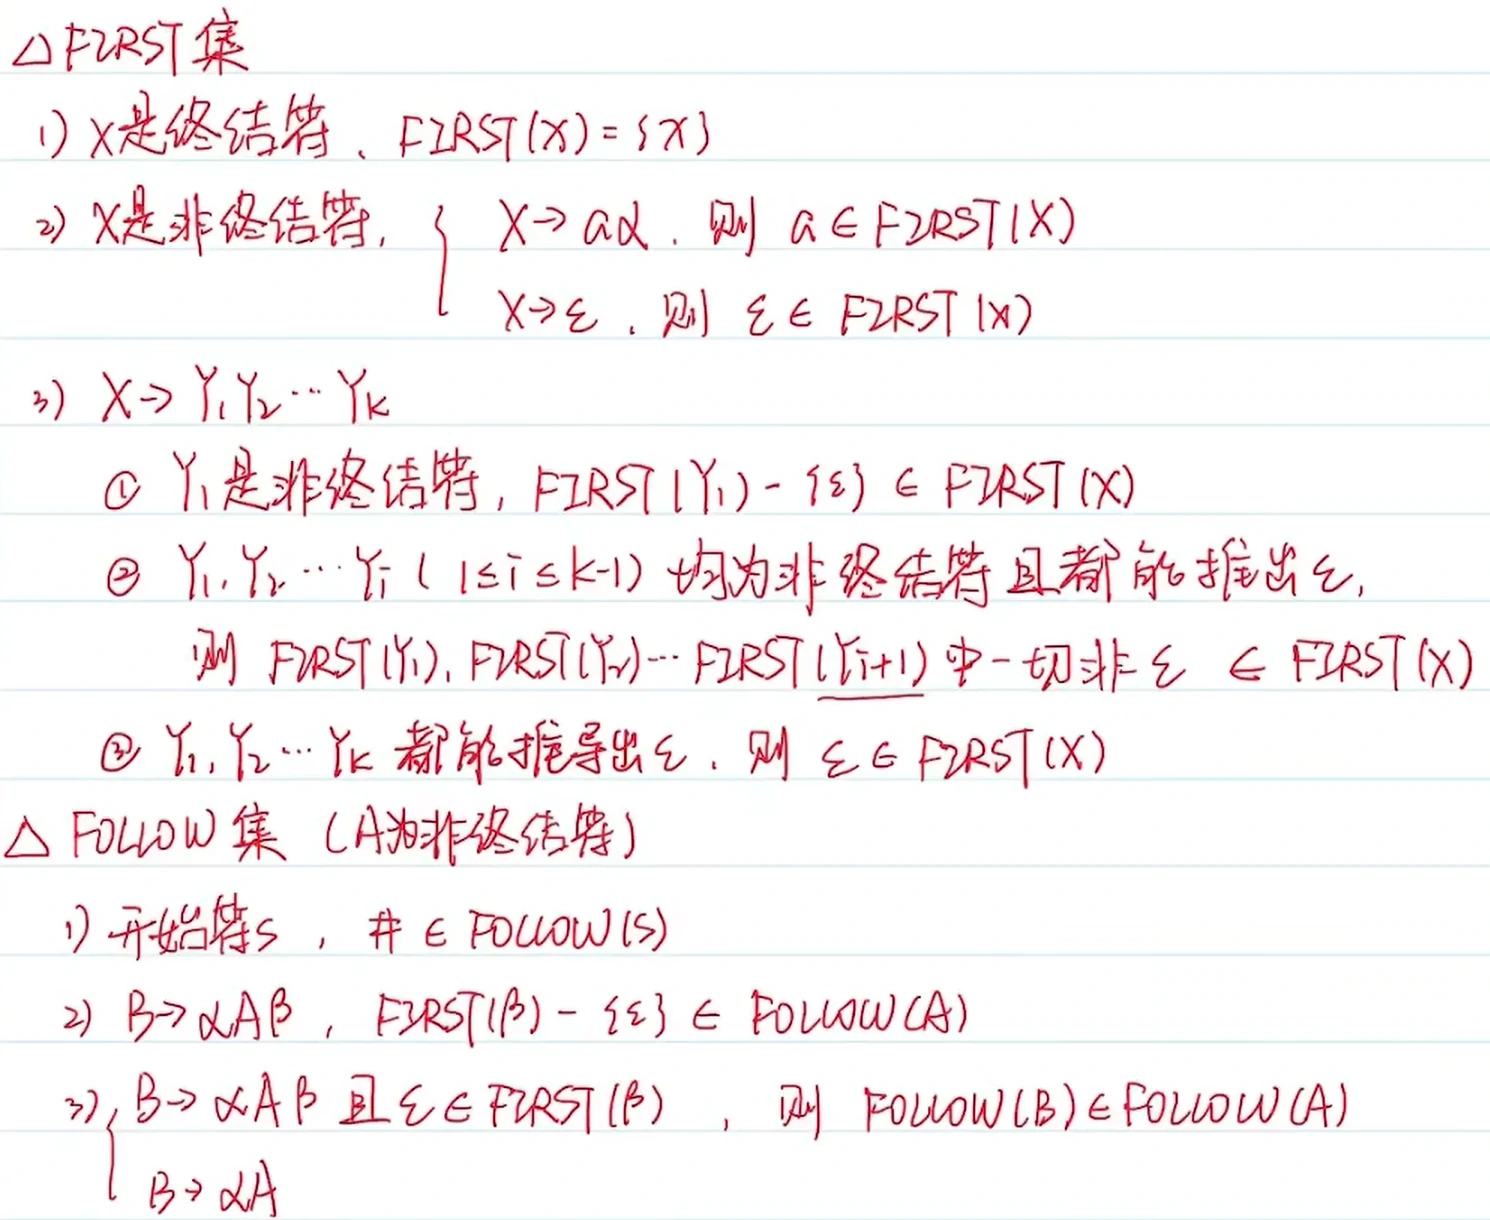 △ FIRST集
1) X是终结符、FIRST(X)={X}
2) X是非终结符, { X→aα, 则 a∈FIRST(X)
X→ε, 则 ε∈FIRST(X)
3) X→Y₁Y₂…Yₖ
① Y₁是非终结符, FIRST(Y₁)-{ε}∈FIRST(X)
② Y₁,Y₂…Yᵢ(1≤i≤k-1)均为非终结符且都能推出ε,
则 FIRST(Y₁),FIRST(Y₂)…FIRST(Yᵢ₊₁)中一切非ε ∈ FIRST(X)
③ Y₁,Y₂…Yₖ都能推导出ε, 则 ε∈FIRST(X)
△ FOLLOW集 (A为非终结符)
1) 开始符S, #∈FOLLOW(S)
2) B→αAβ, FIRST(β)-{ε}∈FOLLOW(A)
3) { B→αAβ且ε∈FIRST(β), 则 FOLLOW(B)∈FOLLOW(A)
B→αA